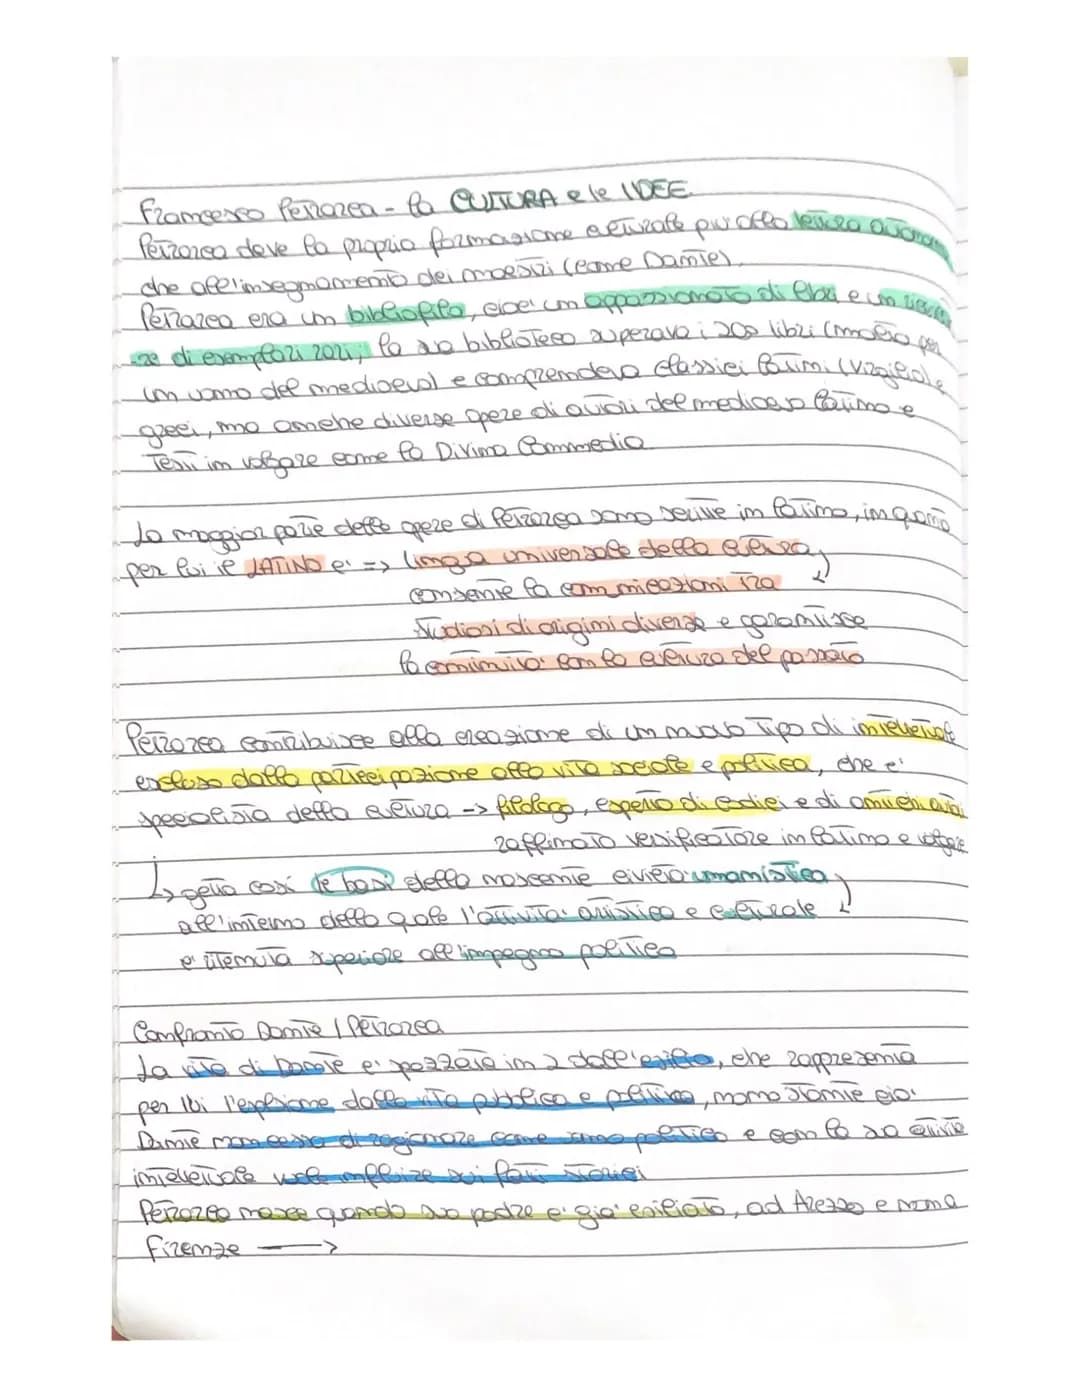 Francesco Petrarca - la CULTURA e le IDEE
Petrarca deve la propria formazione culturale piu' alla lettura
che all'insegnamento dei maestri (come Dante)
Petrarca era un bibliofilo, cioe' un appassionato di libri e un
di esemplari rari; la sua biblioteca superava i 200 libri (molto per
un uomo del medioevo) e comprendeva classici latini (Virgilio) e
greci, ma anche diverse opere di autori del medioevo latino e
Testi in volgare come la Divina Commedia
La maggior parte delle opere di Petrarca sono scritte in latino, in quanto
per lui il LATINO e' => lingua universale della cultura,
consente la comunicazioni tra
studiosi di origini diverse e garantisce
la continuita' con la cultura del passato
Petrarca contribuisce alla creazione di un nuovo tipo di intellettuale
escluso dalla partecipazione alla vita sociale e politica, che e'
specialista della cultura -> filologo, esperto di codici e di antichi
raffinato versificatore in latino e volgare
↳ getta cosi le basi della nascente civilta' umanistica,
all'interno della quale l'attivita' artistica e culturale
e' ritenuta superiore all'impegno politico
Confronto Dante / Petrarca
La vita di Dante e' spezzata in 2 dall'esilio, che rappresenta
per lui l'esplusione dalla vita pubblica e politica, nonostante cio'
Dante non cessa di ragionare come uomo politico e con la sua
intellettuale vuole influire sui fatti storici
Petrarca nasce quando suo padre e' gia' esiliato, ad Arezzo e non a
Firenze →